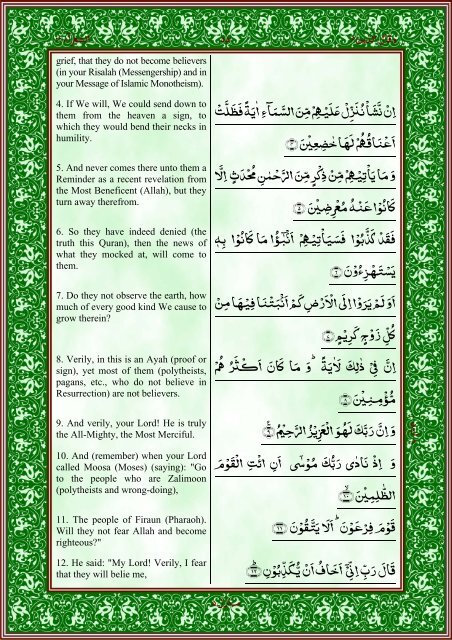 grief, that they do not become believers
(in your Risalah (Messengership) and in
your Message of Islamic Monotheism).
4. If We will, We could send down to
them from the heaven a sign, to
which they would bend their necks in
humility.
اِنْ نَّشَاْ نُنَزِّلْ عَلَيْهِمْ مِّنَ السَّمَآءِ اٰيَةً فَظَلَّتْ
اَعْنَاقُهُمْ لَهَا خٰضِعِيْنَ ﴿۴﴾
5. And never comes there unto them a
Reminder as a recent revelation from
the Most Beneficent (Allah), but they
turn away therefrom.
وَمَا يَاْتِيْهِمْ مِّنْ ذِكْرٍ مِّنَ الرَّحْمٰنِ مُحْدَثٍ اِلَّا
كَانُوْا عَنْهُ مُعْرِضِيْنَ ﴿۵﴾
6. So they have indeed denied (the
truth this Quran), then the news of
what they mocked at, will come to
them.
فَقَدْ كَذَّبُوْا فَسَيَاْتِيْهِمْ اَنْۢبٰٓؤُا مَا كَانُوْا بِهٖ
يَسْتَهْزِءُوْنَ ﴿۶﴾
7. Do they not observe the earth, how
much of every good kind We cause to
grow therein?
اَوَلَمْ يَرَوْا اِلَى الْاَرْضِ كَمْ اَنْۢبَتْنَا فِيْهَا مِنْ
كُلِّ زَوْجٍ كَرِيْمٍ ﴿۷﴾
8. Verily, in this is an Ayah (proof or
sign), yet most of them (polytheists,
pagans, etc., who do not believe in
Resurrection) are not believers.
اِنَّ فِيْ ذٰلِكَ لَاٰيَةً ؕ وَ مَا كَانَ اَكْثَرُ هُمْ
مُّؤْمِنِيْنَ ﴿۸﴾
9. And verily, your Lord! He is truly
the All-Mighty, the Most Merciful.
وَ اِنَّ رَبَّكَ لَهُوَ الْعَزِيْزُ الرَّحِيْمُ ﴿۹﴾
10. And (remember) when your Lord
called Moosa (Moses) (saying): "Go
to the people who are Zalimoon
(polytheists and wrong-doing),
وَ اِذْ نَادٰى رَبُّكَ مُوْسٰٓى اَنِ ائْتِ الْقَوْمَ
الظّٰلِمِيْنَ ﴿۱۰﴾
11. The people of Firaun (Pharaoh).
Will they not fear Allah and become
righteous?"
قَوْمَ فِرْعَوْنَ ؕ اَلَا يَتَّقُوْنَ ﴿۱۱﴾
12. He said: "My Lord! Verily, I fear
that they will belie me,
قَالَ رَبِّ اِنِّيْۤ اَخَافُ اَنْ يُّكَذِّبُوْنِ ﴿۱۲﴾